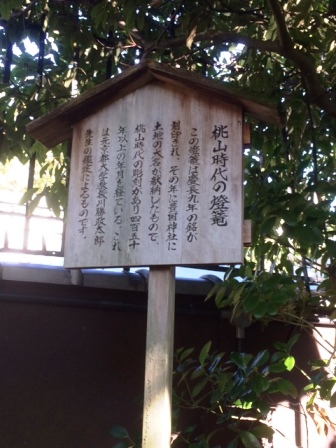 桃山時代の燈篭
この燈篭は慶長九年の銘が
刻印され、その年に吉田神社に
土地の大名が献納したもので、
桃山時代の彫刻があり四百五十
年以上の年月を経ている、これ
は元京都大学教長川勝政太郎
先生の鑑定によるものです。